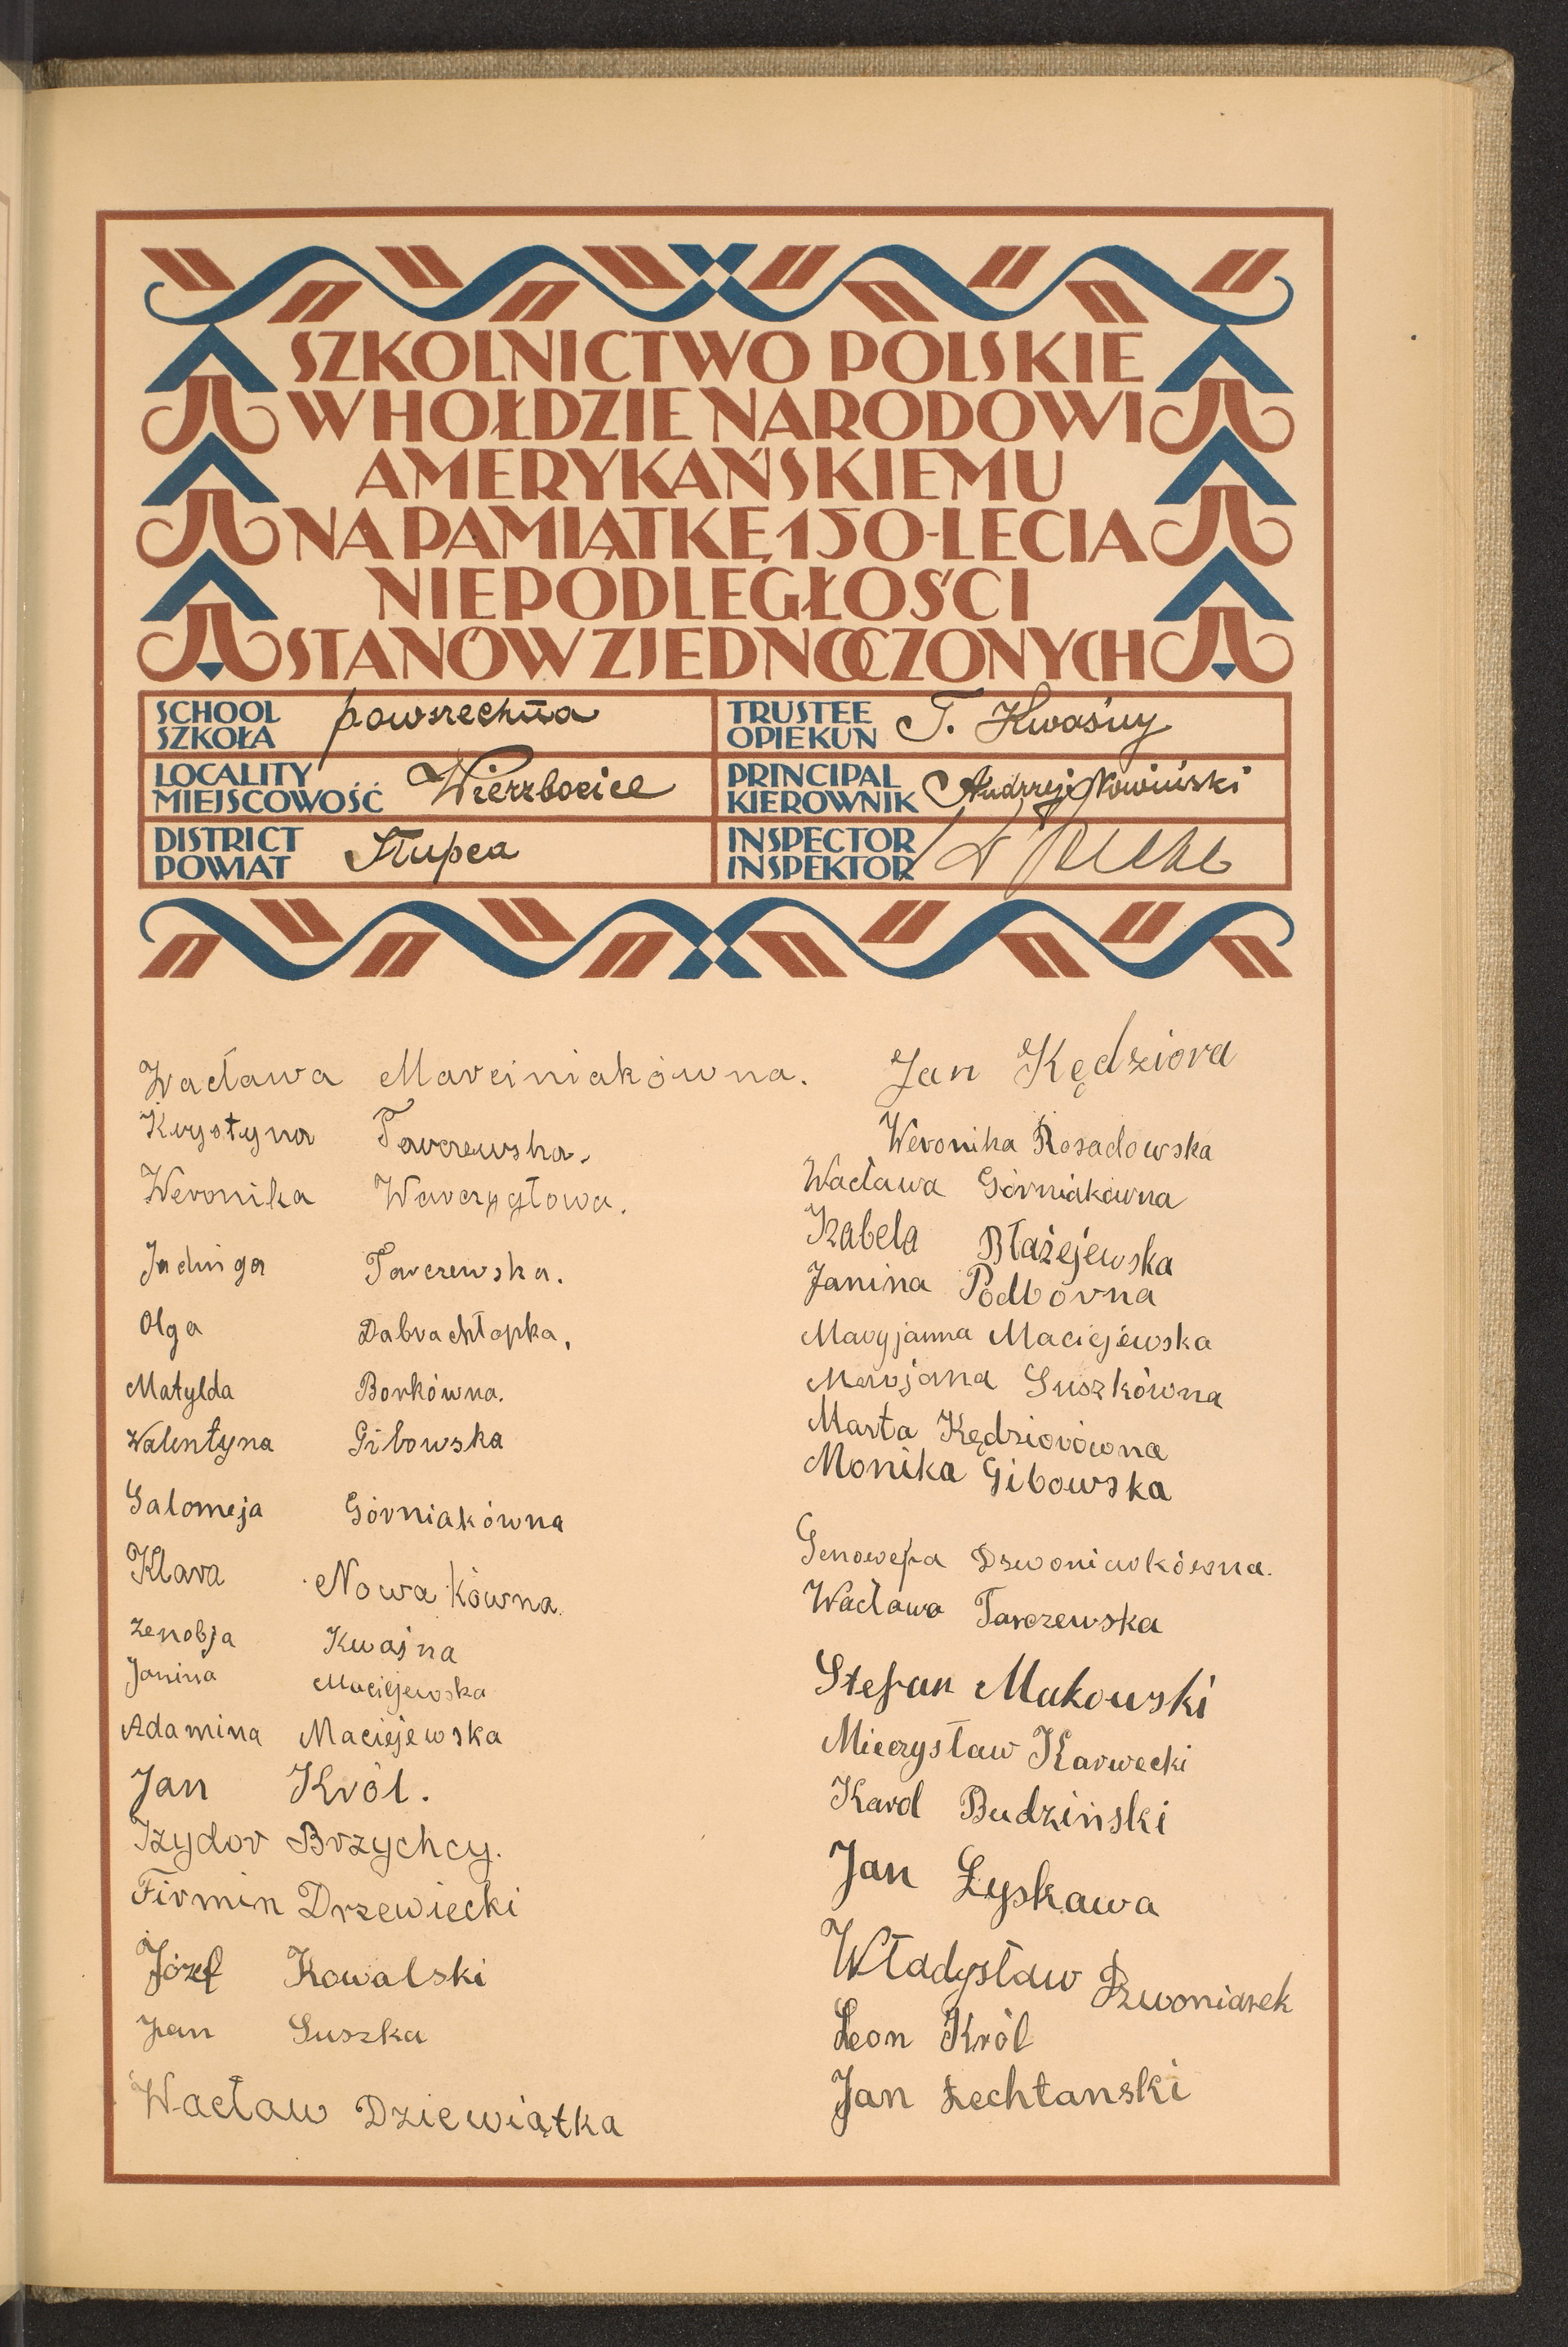 SZKOLNICTWO POLSKIE
W HOŁDZIE NARODOWI
AMERYKAŃSKIEMU
NA PAMIĄTKĘ 150-LECIA
NIEPODLEGŁOŚCI
STANÓW ZJEDNOCZONYCH
SCHOOL
SZKOŁA
powszechna
LOCALITY
MIEJSCOWOŚĆ
Wierzbocice
DISTRICT
POWIAT
Słupca
TRUSTEE
OPIEKUN
T. Kwaśny
PRINCIPAL
KIEROWNIK
Andrzej Nowiński
INSPECTOR
INSPEKTOR
Wacława Marciniakówna.
Krystyna Tarczewska.
Weronika Warczygłowa.
Jadwiga Tarczewska.
Olga Dobrachłopka,
Matylda Borkówna.
Walentyna Gibowska
Salomeja Górniakówna
Klara Nowakówna.
Zenobja Kwaśna
Janina Maciejewska
Adamina Maciejewska
Jan Król.
Izydor Brzychcy.
Firmin Drzewiecki
Józef Kowalski
Jan Suszka
Wacław Dziewiątka
Jan Kędziora
Weronika Rosadowska
Wacława Górniakówna
Izabela Błażejewska
Janina Podborna
Maryjanna Maciejewska
Marjana Suszkówna
Marta Kędziorówna
Monika Gibowska
Genowefa Dzwoniarkówna.
Wacława Tarczewska
Stefan Makowski
Mieczysław Karwacki
Karol Budziński
Jan Łyskawa
Władysław Dzwoniarek
Leon Król
Jan Łechtanski